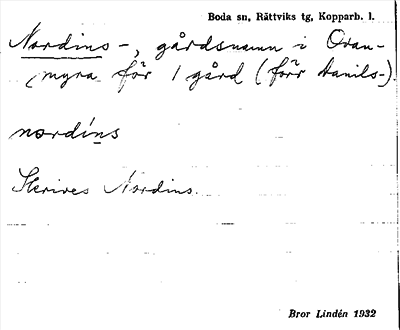 Boda sn, Rättviks tg, Kopparb. l.
Nordins-, gårdsnamn i Ovan-
myra för 1 gård (förr Danils-).
nordins
Skrives Nordins.
Bror Lindén 1932